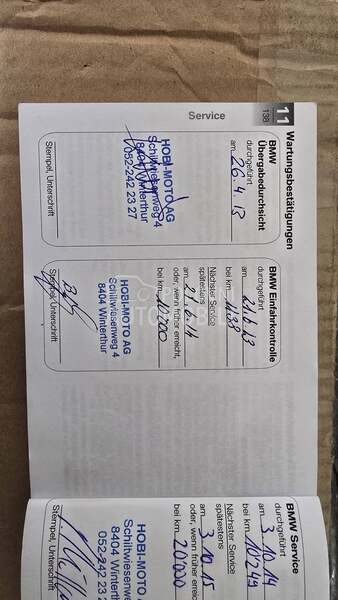 11
138
Wartungsbestätigungen
Service
BMW
Übergabedurchsicht
durchgeführt
am 26.4.13
HOBI-MOTO AG
Schiltwiesenweg 4
8404 Winterthur
052-242 23 27
Stempel, Unterschrift
BMW Einfahrkontrolle
durchgeführt
am 21.6.13
bei km 1138
Nächster Service
spätestens
am 21.6.14
oder, wenn früher erreicht,
bei km 10200
HOBI-MOTO AG
Schiltwiesenweg 4
8404 Winterthur
Stempel, Unterschrift
BMW Service
durchgeführt
am 3.10.14
bei km 10249
Nächster Service
spätestens
am 3.10.15
oder, wenn früher erreicht
bei km 20'000
HOBI-MOTO
Schiltwiesenw
8404 Winterth
052-242 23
Stempel, Unterschrift